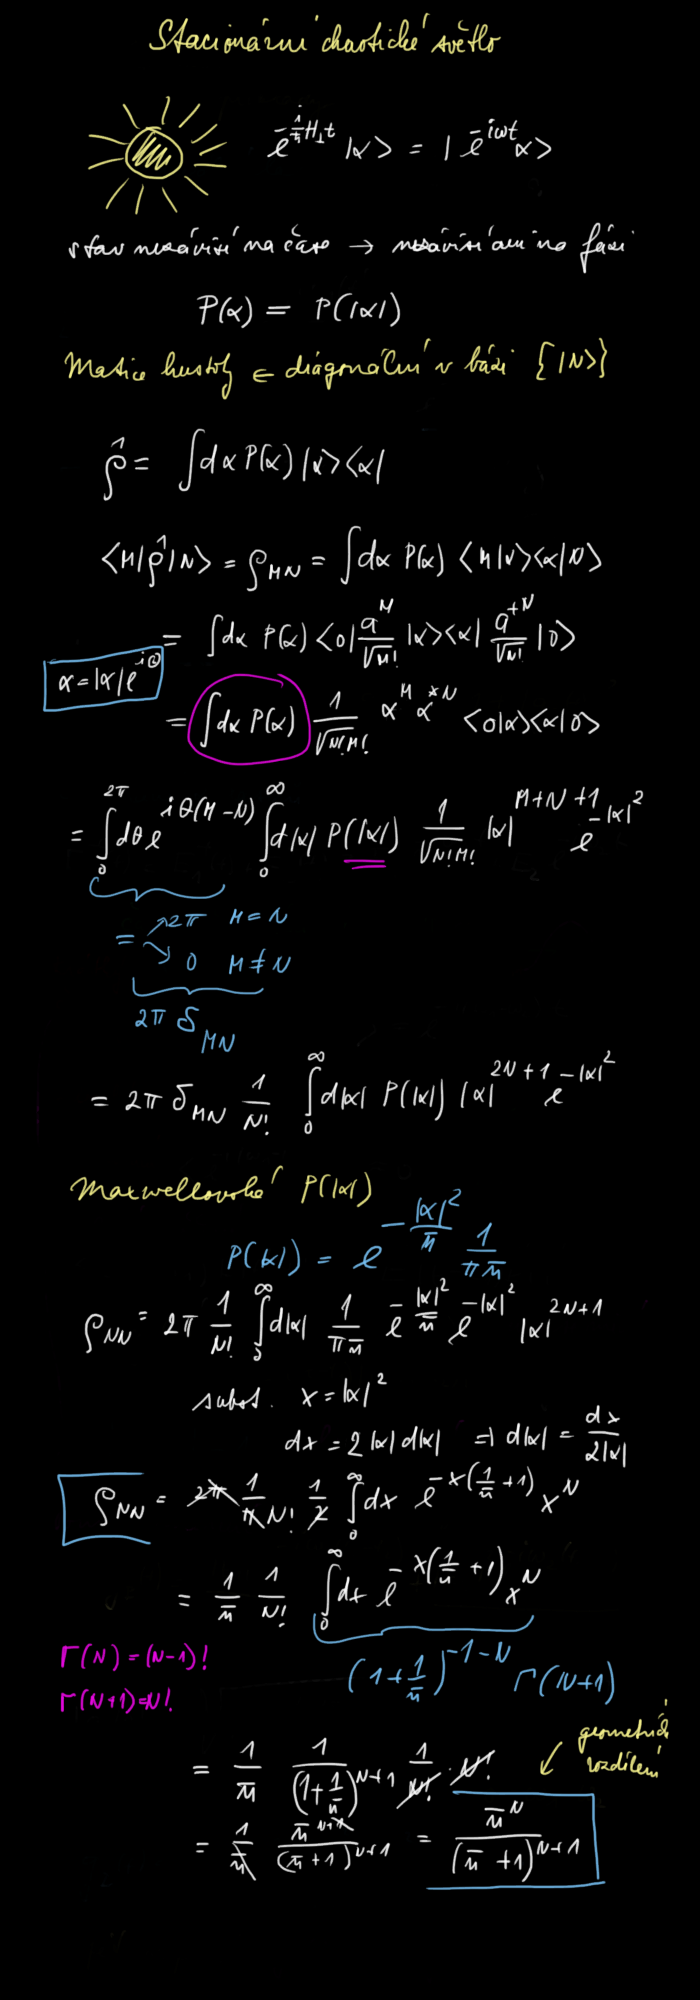 Stacionární chaotické světlo
e^{-\frac{i}{ħ}H_⊥t} |α> = | e^{-iωt}α>
stav nezávisí na čase → nezávisí ani na fázi
P(α) = P(|α|)
Matice hustoty ∈ diagonální v bázi {|N>}
\hat{ρ} = ∫dα P(α) |α><α|
<M|\hat{ρ}|N> = ρ_{MN} = ∫dα P(α) <M|α><α|N>
= ∫dα P(α) <0| \frac{a^M}{√M!} |α><α| \frac{a^{+N}}{√N!} |0>
α = |α| e^{iθ}
= ∫dα P(α) \frac{1}{√N!M!} α^M α^{*N} <0|α><α|0>
= ∫_0^{2π} dθ e^{iθ(M-N)} ∫_0^∞ d|α| P(|α|) \frac{1}{√N!M!} |α|^{M+N+1} e^{-|α|^2}
= ↗ 2π M = N
↘ 0 M ≠ N
2π δ_{MN}
= 2π δ_{MN} \frac{1}{N!} ∫_0^∞ d|α| P(|α|) |α|^{2N+1} e^{-|α|^2}
Maxwellovské P(|α|)
P(|α|) = e^{-\frac{|α|^2}{\bar{n}}} \frac{1}{π\bar{n}}
ρ_{NN} = 2π \frac{1}{N!} ∫_0^∞ d|α| \frac{1}{π\bar{n}} e^{-\frac{|α|^2}{\bar{n}}} e^{-|α|^2} |α|^{2N+1}
subst. x = |α|^2
dx = 2|α| d|α| ⇒ d|α| = \frac{dx}{2|α|}
ρ_{NN} = 2π \frac{1}{π N!} \frac{1}{2} ∫_0^∞ dx e^{-x(\frac{1}{\bar{n}}+1)} x^N
= \frac{1}{\bar{n}} \frac{1}{N!} ∫_0^∞ dx e^{-x(\frac{1}{\bar{n}}+1)} x^N
Γ(N) = (N-1)!
Γ(N+1) = N!
(1+\frac{1}{\bar{n}})^{-1-N} Γ(N+1)
geometrické
rozdělení
= \frac{1}{\bar{n}} \frac{1}{(1+\frac{1}{\bar{n}})^{N+1}} \frac{1}{N!} · N!
= \frac{1}{\bar{n}} \frac{\bar{n}^{N+1}}{(\bar{n}+1)^{N+1}} = \frac{\bar{n}^N}{(\bar{n}+1)^{N+1}}